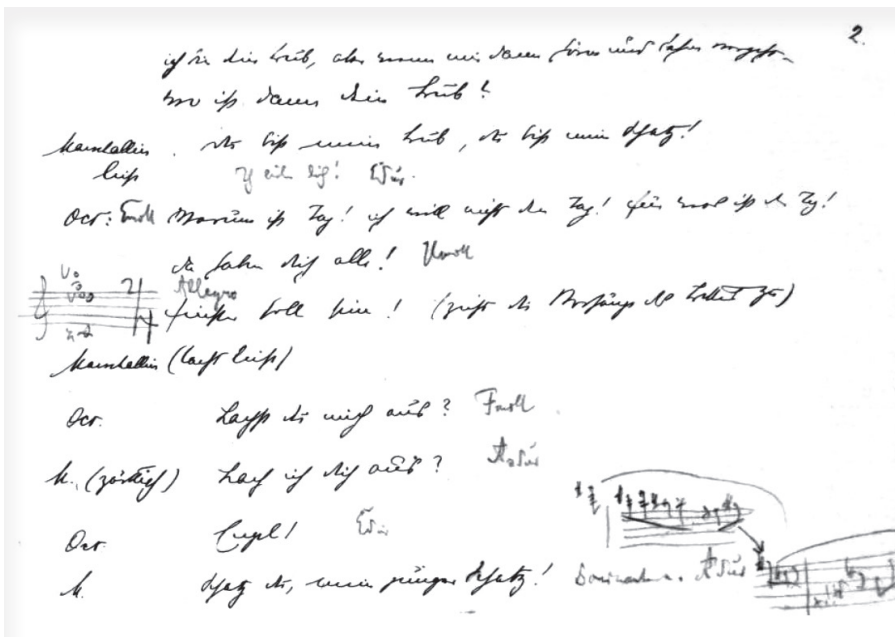 2.
ich bin dein Bub, aber wenn mir dann Hören und Sehen vergeht –
wo ist dann dein Bub?
Marschallin. du bist mein Bub, du bist mein Schatz!
leise
Oct: Warum ist Tag! ich will nicht den Tag! für was ist der Tag!
da haben dich alle!
Allegro
finster soll sein! (zieht die Vorhänge zu)
Marschallin (lacht leise)
Oct. Lachst du mich aus? Fmoll
M. (zärtlich) Lach ich dich aus? Asdur
Oct. Engel!
M. Schatz du, mein junger Schatz! Asdur